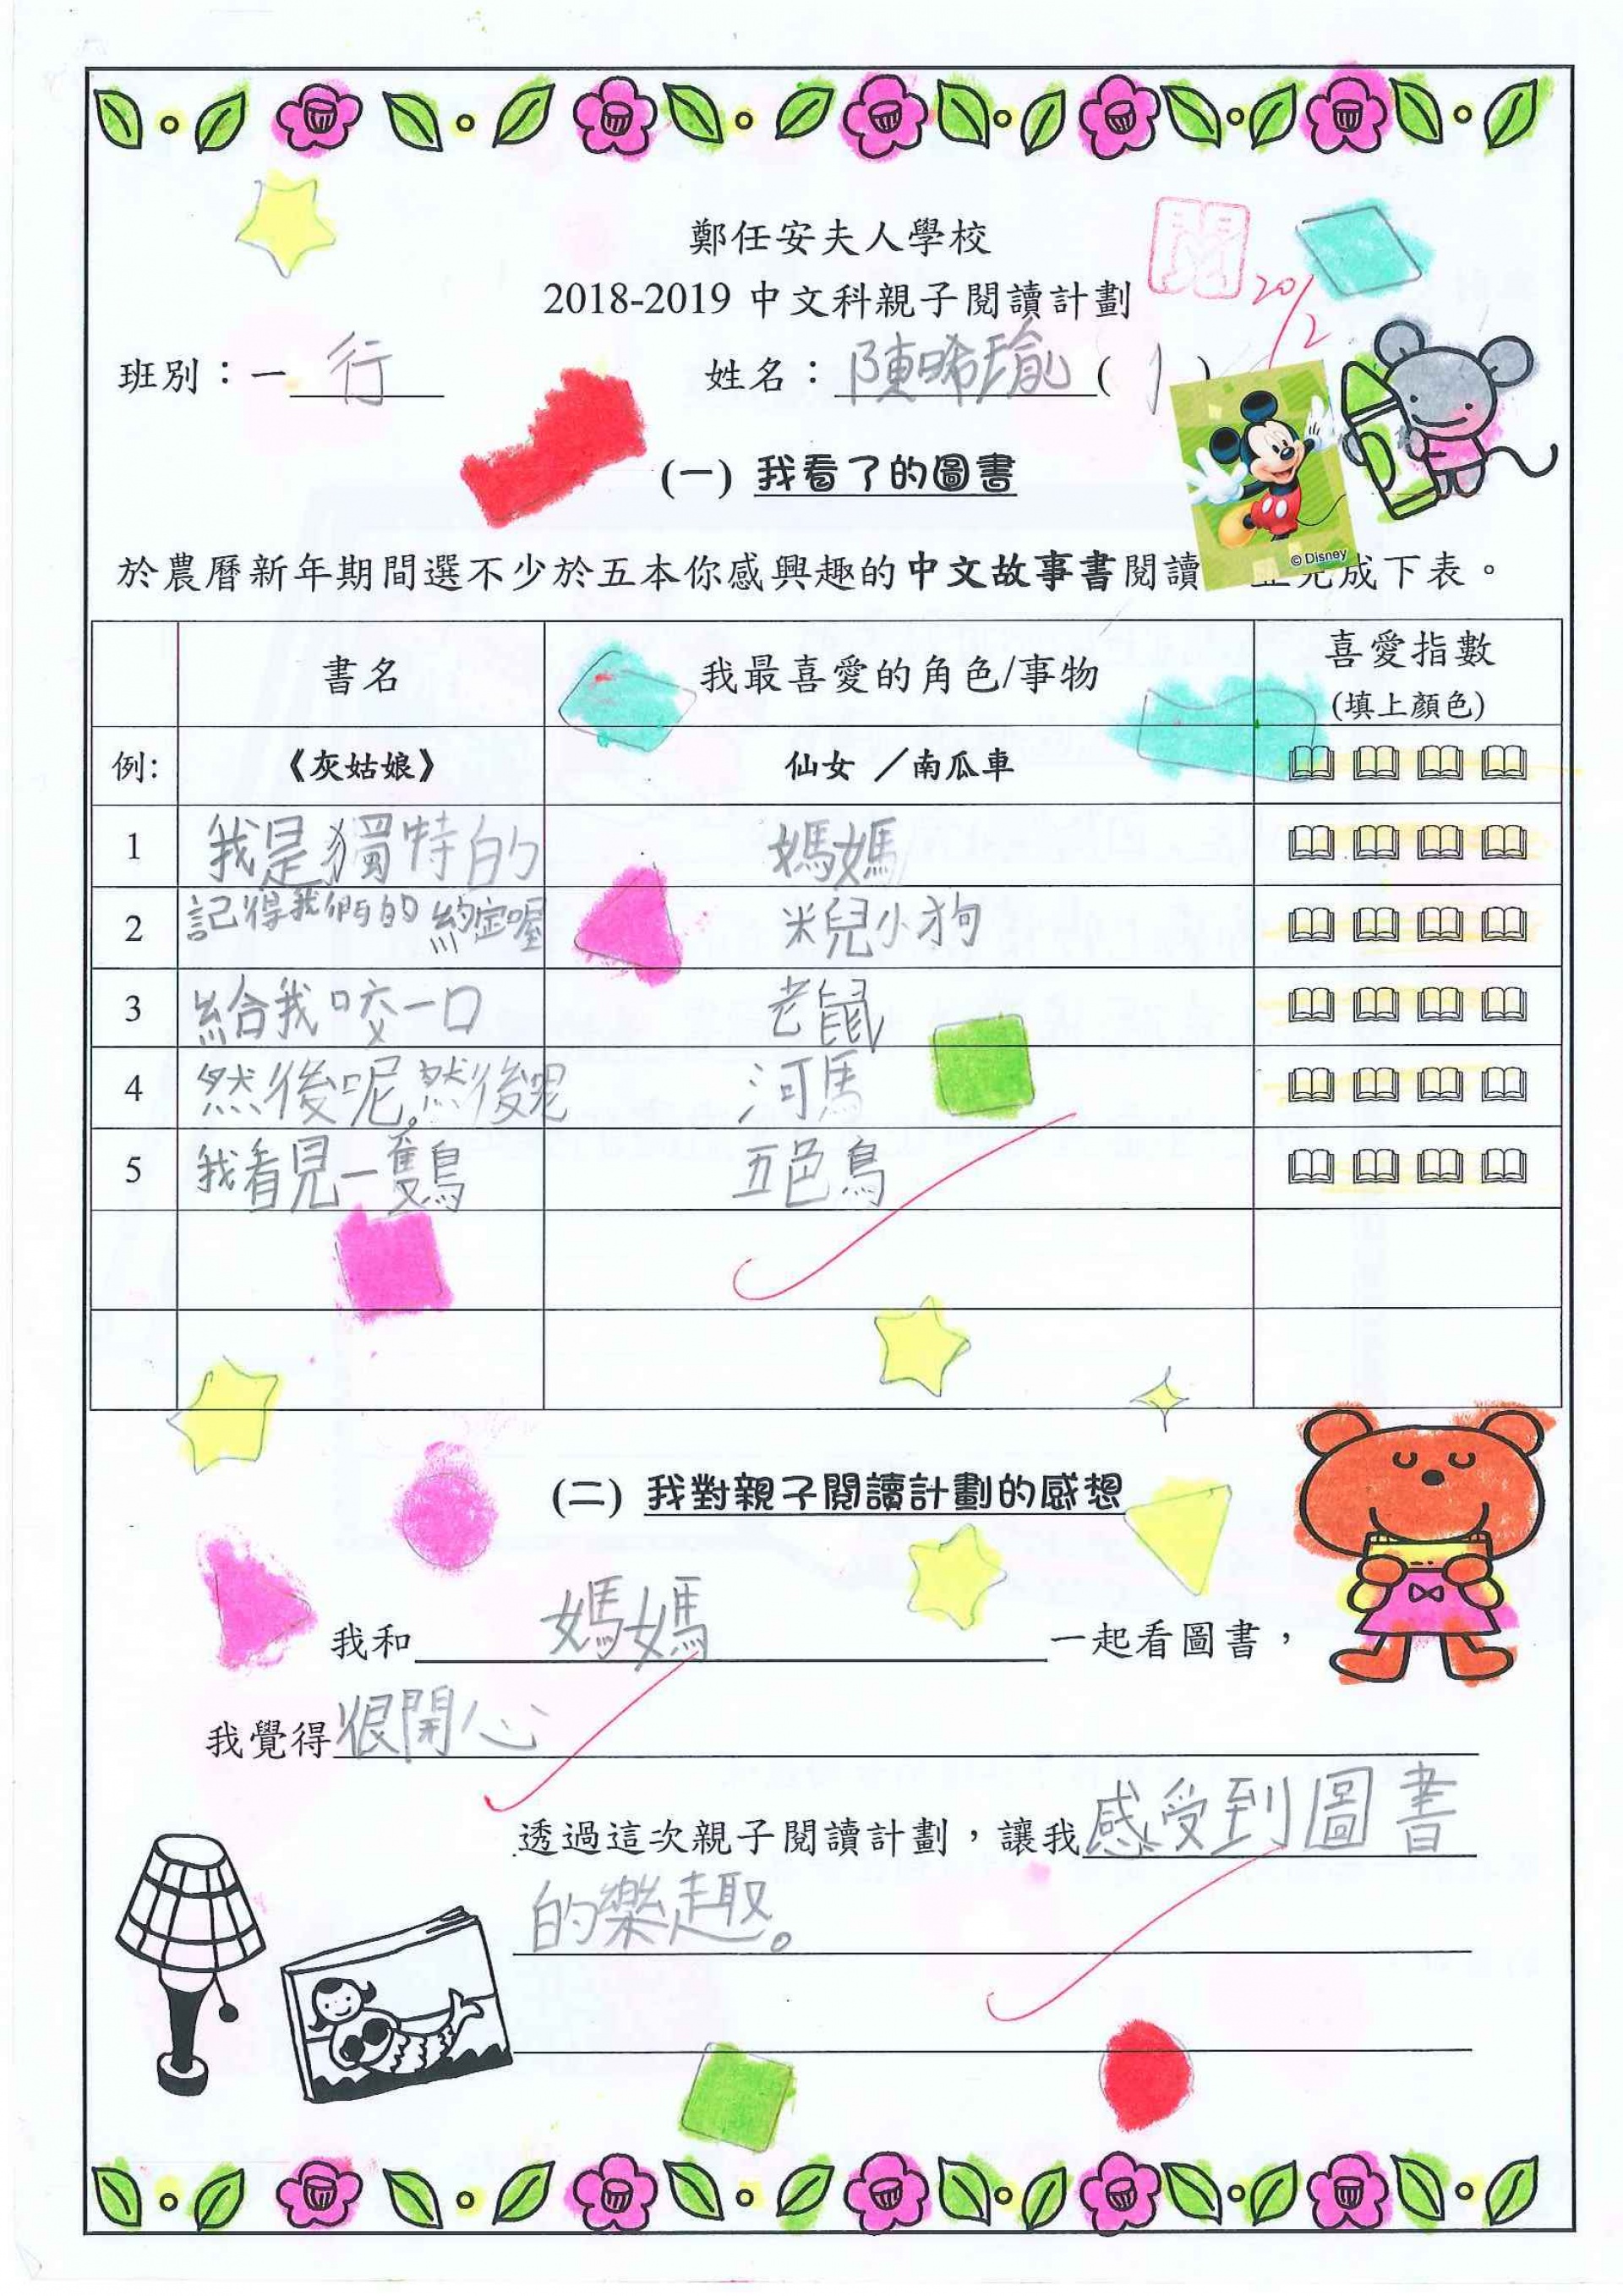 鄭任安夫人學校
2018-2019 中文科親子閱讀計劃
閱
20/2
班別：一 行 姓名：陳晞瑜 ( 1 )
(一) 我看了的圖書
© Disney
於農曆新年期間選不少於五本你感興趣的中文故事書閱讀 完成下表。
書名 我最喜愛的角色/事物 喜愛指數
(填上顏色)
例: 《灰姑娘》 仙女／南瓜車
1 我是獨特的 媽媽
2 記得我們的約定喔 米兒小狗
3 給我咬一口 老鼠
4 然後呢。然後呢 河馬
5 我看見一隻鳥 五色鳥
(二) 我對親子閱讀計劃的感想
我和 媽媽 一起看圖書，
我覺得 很開心
透過這次親子閱讀計劃，讓我 感受到圖書
的樂趣。